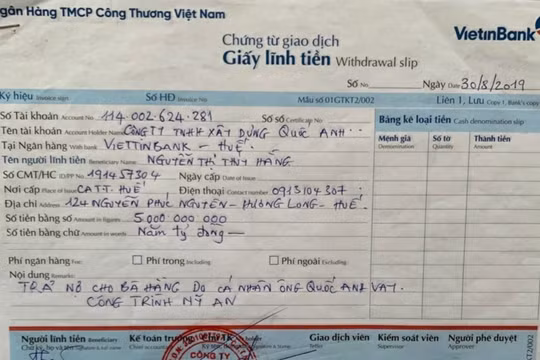 Ngân Hàng TMCP Công Thương Việt Nam
VietinBank
Chứng từ giao dịch
Giấy lĩnh tiền Withdrawal slip
Số No Ngày Date 30/8/2019
Ký hiệu Số HĐ Invoice No Mẫu số 01GTKT2/002 Liên 1, Lưu Copy 1, Bank's copy
Số Tài khoản Account No 114.002.624.281 Số sổ Certificate No
Tên tài khoản Account Holder Name CÔNG TY TNHH XÂY DỰNG QUỐC ANH
Tại Ngân hàng With bank VIETTINBANK - HUẾ.
Tên người lĩnh tiền Beneficiary Name NGUYỄN THỊ THÚY HẰNG
Số CMT/HC ID/PP No 191457304 Ngày cấp Date of Issue
Nơi cấp Place of Issue CATT. HUẾ Điện thoại Contact number 0913104307
Địa chỉ Address 124 NGUYỄN PHÚC NGUYÊN - HƯƠNG LONG - HUẾ.
Số tiền bằng số Amount in figures 5.000.000.000
Số tiền bằng chữ Amount in words Năm tỷ đồng
Bảng kê loại tiền Cash denomination slip
Mệnh giá Số tờ Thành tiền
Denomination Quantity Amount
Phí ngân hàng Fee: Phí trong Including Phí ngoài Excluding
Nội dung Remarks
TRẢ NỢ CHO BÀ HẰNG DO CÁ NHÂN ÔNG QUỐC ANH VAY.
CÔNG TRÌNH MỸ AN
Người lĩnh tiền Beneficiary Kế toán trưởng Giao dịch viên Kiểm soát viên Người phê duyệt
Teller Supervisor Approver
CÔNG TY